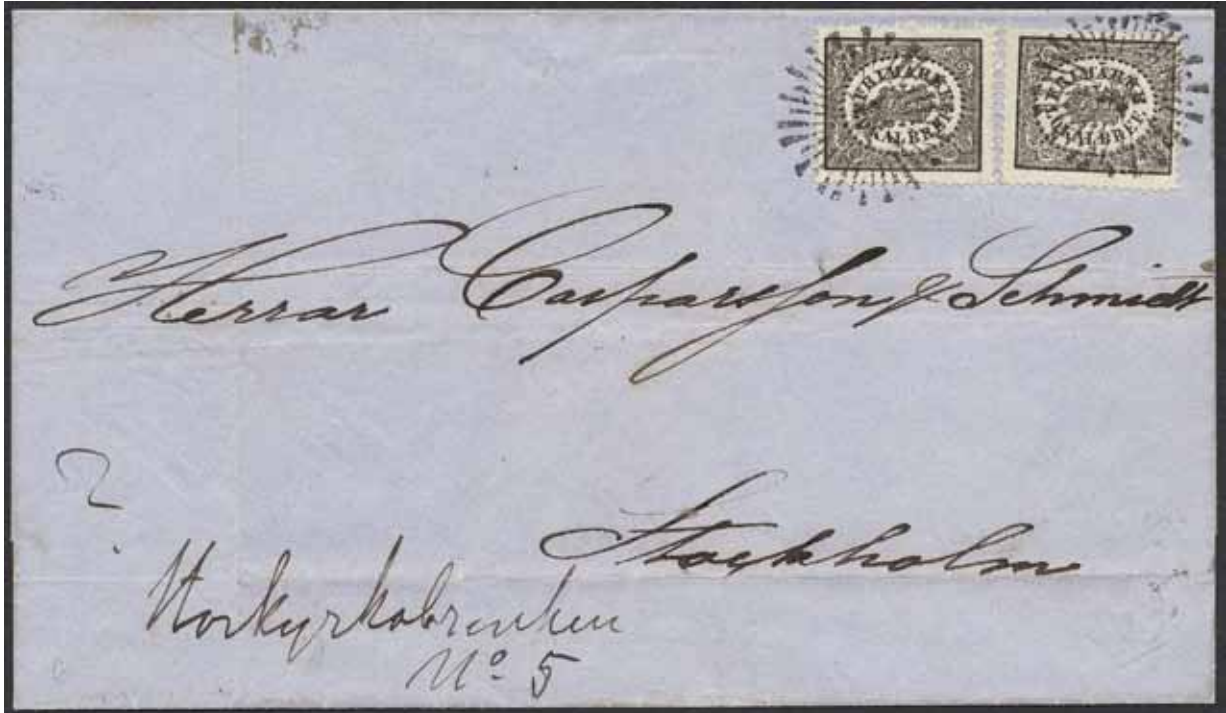 FRIMÄRKE LOKALBREF FRIMÄRKE LOKALBREF
Herrar Casparsson & Schmidt
2
Stockholm
Storkyrkobrinken
No 5